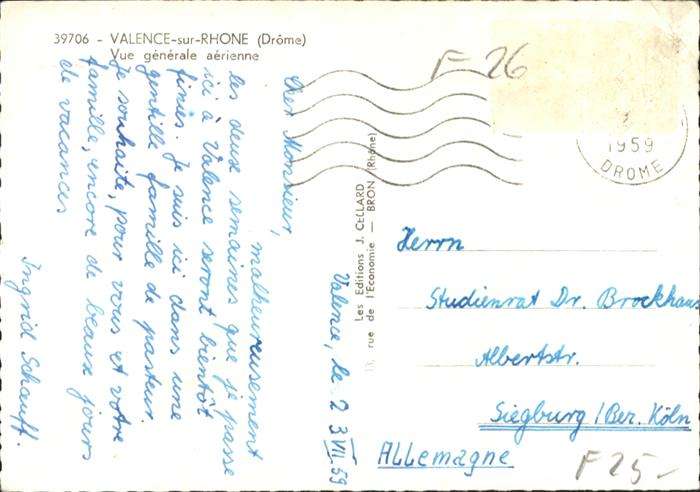 39706 - VALENCE-sur-RHONE (Drôme)
Vue générale aérienne
F 26
1959
DROME
Valence, le 23 VII 59
Cher Monsieur,
malheureusement
les deux semaines que je passe
ici à Valence seront bientôt
finies. Je suis ici dans une
gentille famille de pasteur.
Je souhaite, pour vous et votre
famille, encore de beaux jours
de vacances
Ingrid Schauff.
Les Editions J. CELLARD
13, rue de l'Economie — BRON (Rhône)
Herrn
Studienrat Dr. Brockhaus
Albertstr.
Siegburg / Bez. Köln
Allemagne
F 25-